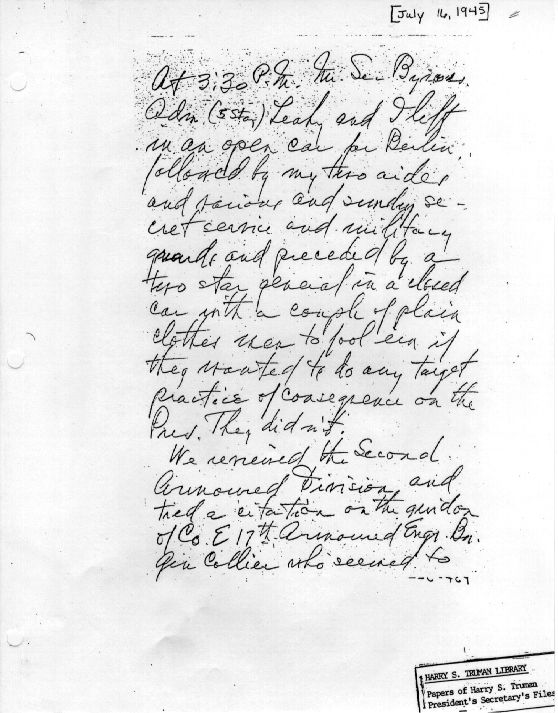 [July 16, 1945]
At 3:30 P.M. Mr. Sec Byrnes,
Adm (5 Star) Leahy and I left
in an open car for Berlin,
followed by my two aides
and various and sundry se-
cret service and military
guards and preceded by a
two star general in a closed
car with a couple of plain
clothes men to fool em if
they wanted to do any target
practice of consequence on the
Pres. They didn't.
We reviewed the Second
Armoured Division and
tied a citation on the guidon
of Co. E 17th Armoured Engr. Bn.
Gen Collier who seemed to
HARRY S. TRUMAN LIBRARY
Papers of Harry S. Truman
President's Secretary's Files